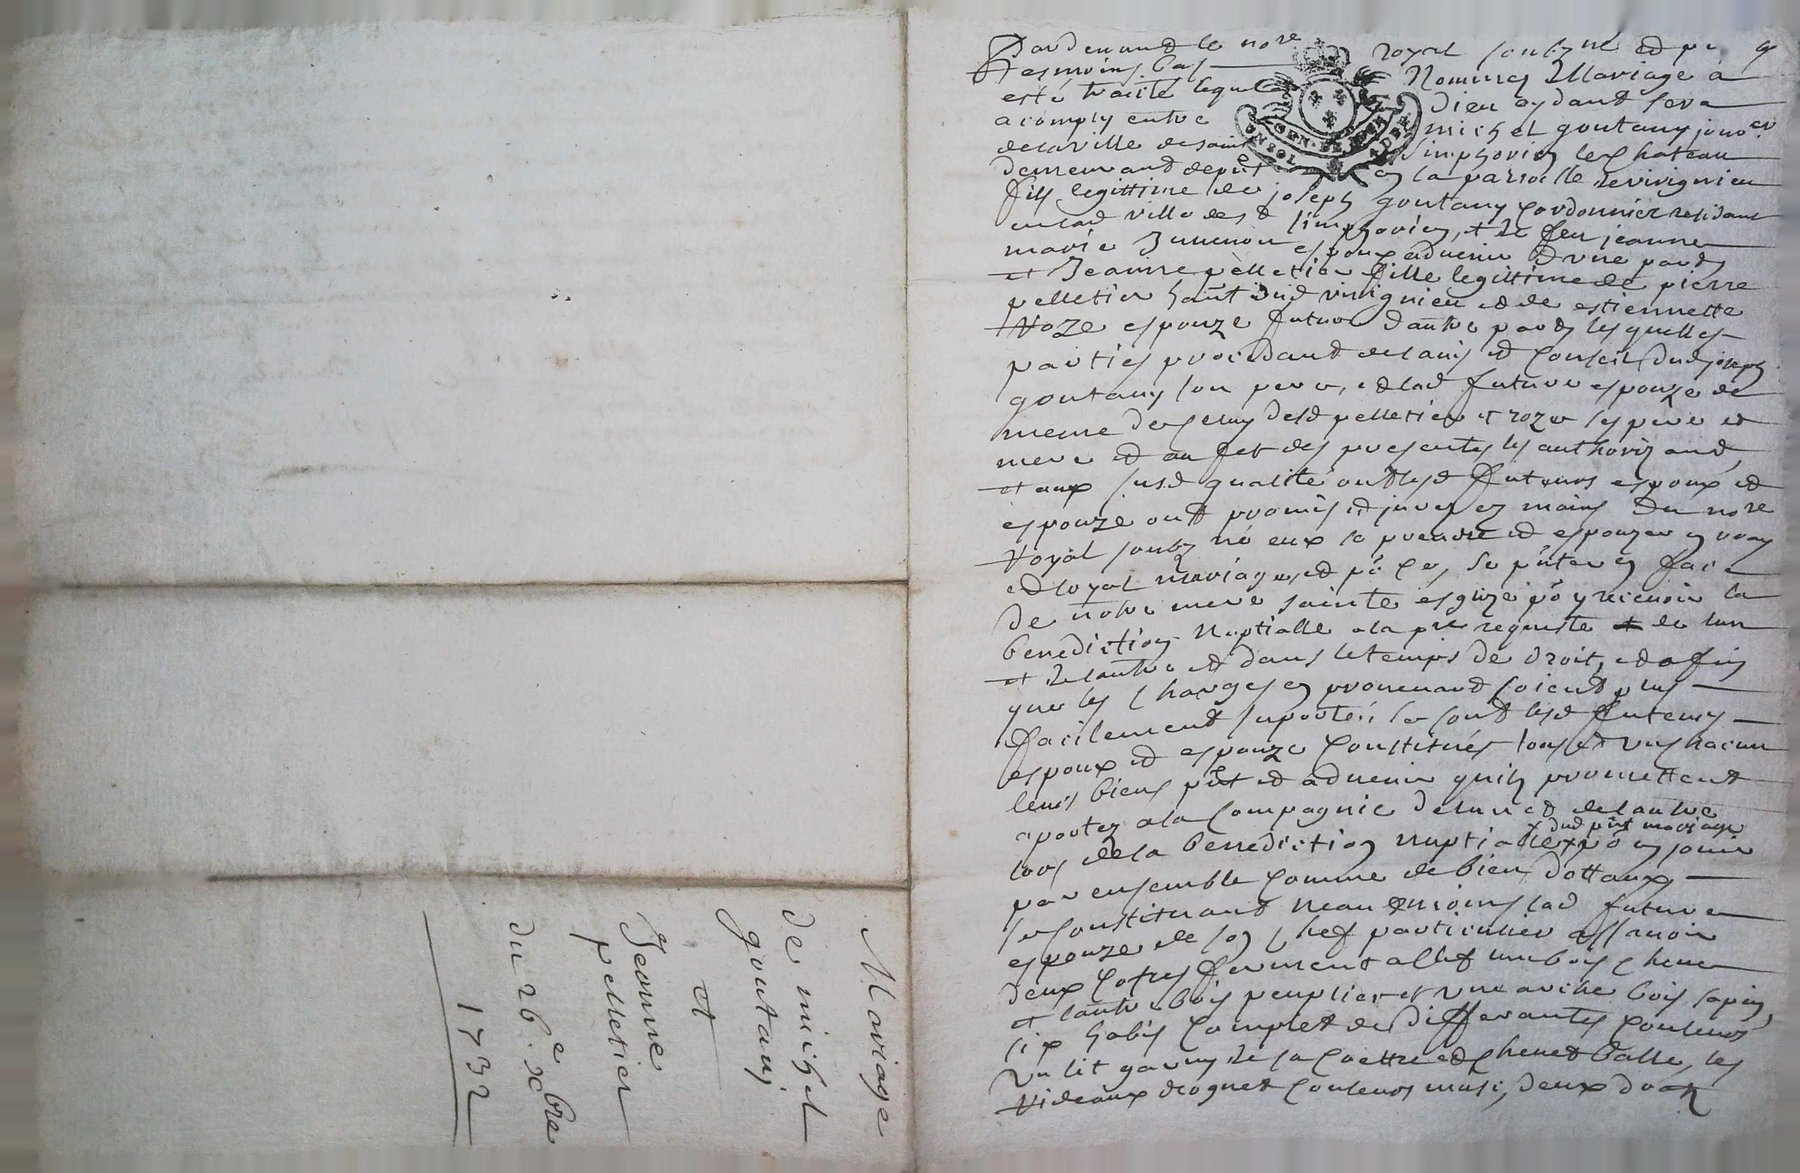 Pardevant le nore royal soubzné et pn
tesmoins bas Nommes Mariage a
esté traicté lequel Dieu aydant sera
acomply entre michel goutany jour
de la ville de saint Simphorien le Chateau
demeurant depnt en la parroisse
fils legittime de joseph goutany Cordonnier residant
en lad ville de St simphorien, et de feu jeanne
marie espoux advenir d'une part
et Jeanne pelletier fille legittime de pierre
pelletier hant dud et de estiennette
Roze espouze future d'autre part, lesquelles
parties procedant de lavis et Conseil dud joseph
goutany son pere, et lad future espouze de
meme de celuy desd pelletier et roze ses pere et
mere et au fet des presentes les authorizant,
et aux susd qualité ont lesd futeurs espoux et
espouze ont promis et jures es mains du nore
Royal soubzné eux se prendre et espouzer en vray
et loyal mariage, et po ce, se pnter en face
de notre mere sainte esglize po y recevoir la
benediction Nuptialle a la pre requiste de lun
et de lautre et dans le temps de droit, et afin
que les Charges en provenant soient plus
facilement suportés se sont lesd futeurs
espoux et espouze Constitués tous et uns chacun
leurs biens pnt et advenir quils promettent
aporter a la Compagnie de lun et de lautre
x dud pnt mariage
lors de la Benediction nuptialle x po en jouir
par ensemble Comme de bien dottaux,
se Constituant neanmoins lad future
espouze de son Chef particulier assavoir
deux Cofres fermant a clef un bois Chene
et lautre bois peuplier et une arche bois sapin,
six habis Complet de differantes Couleurs
un lit garny de sa Coettre et Chevet balle, les
Rideaux droguet Couleurs musc, deux
Mariage
de michel
goutany
et
Jeanne
pelletier
du 26e xbre
1732